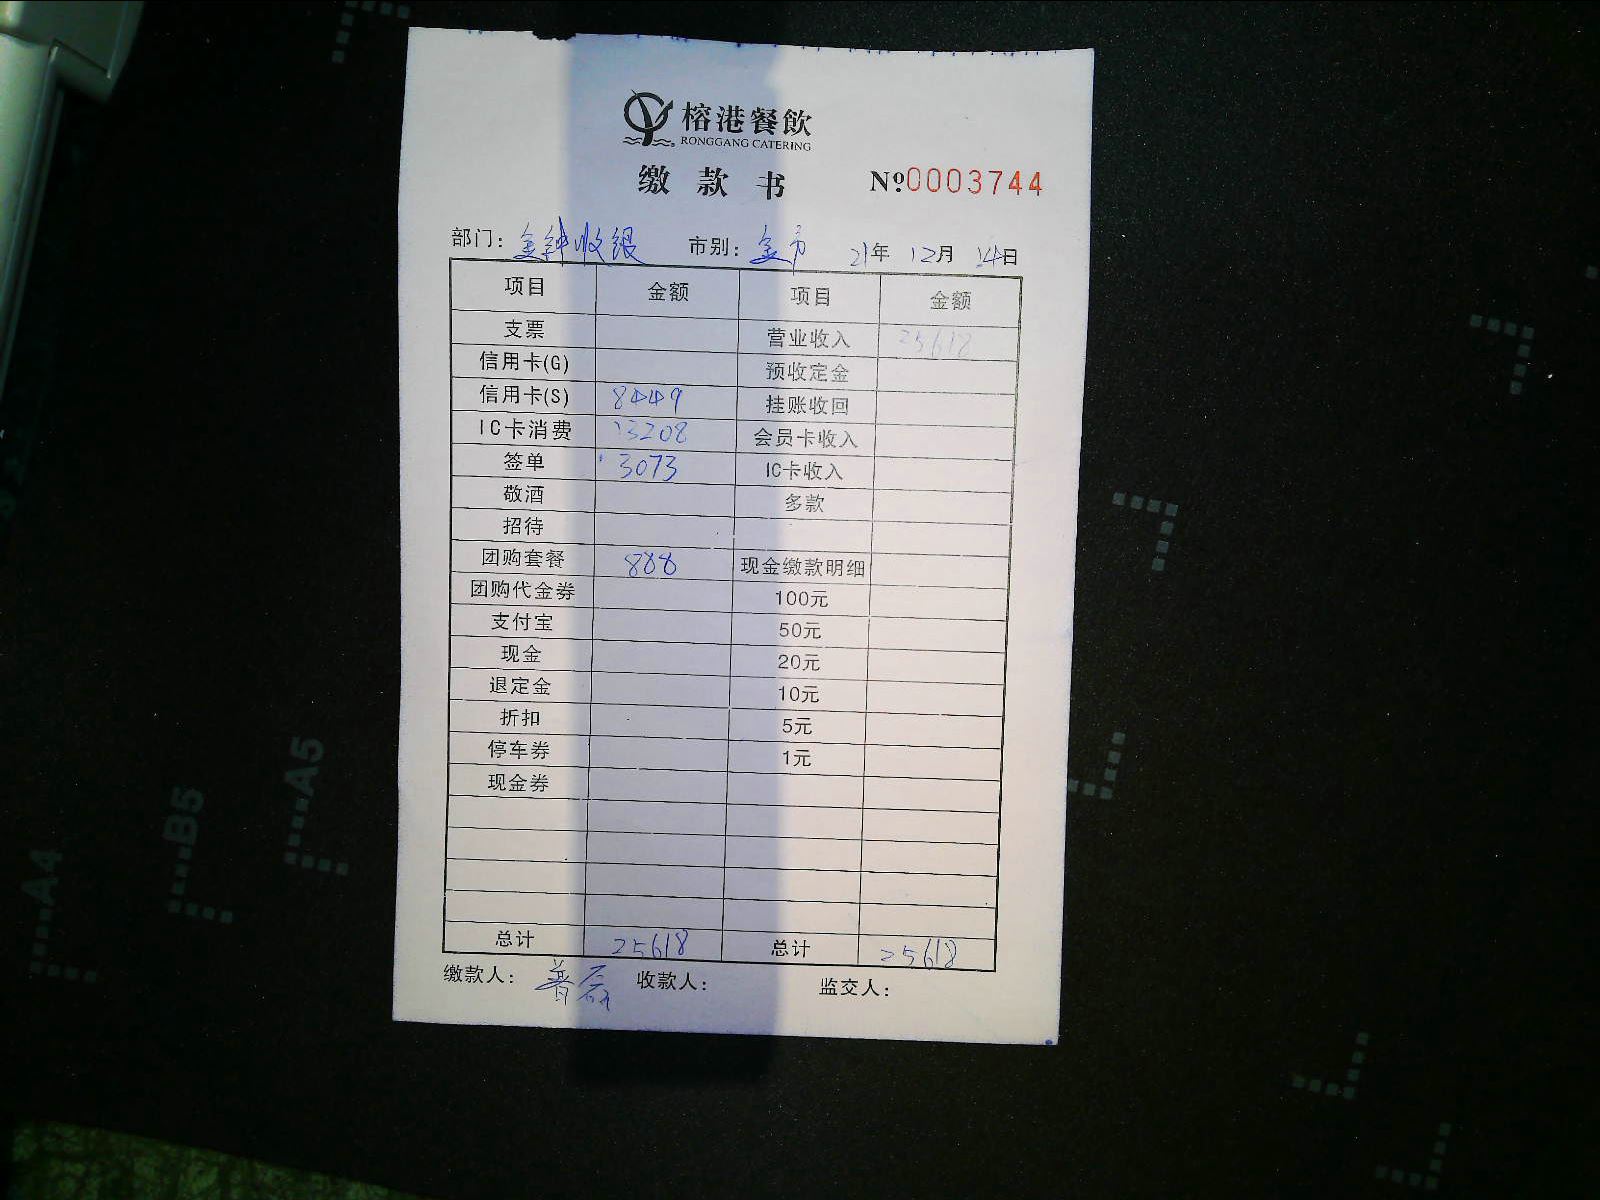 榕港餐飲
RONGGANG CATERING
缴款书 №0003744
部门：金钟收银 市别：全市 21年 12月 14日
项目 金额 项目 金额
支票 营业收入 25618
信用卡(G) 预收定金
信用卡(S) 8449 挂账收回
IC卡消费 13208 会员卡收入
签单 3073 IC卡收入
敬酒 多款
招待
团购套餐 888 现金缴款明细
团购代金券 100元
支付宝 50元
现金 20元
退定金 10元
折扣 5元
停车券 1元
现金券
总计 25618 总计 25618
缴款人： 收款人： 监交人：
A4
B5
A5